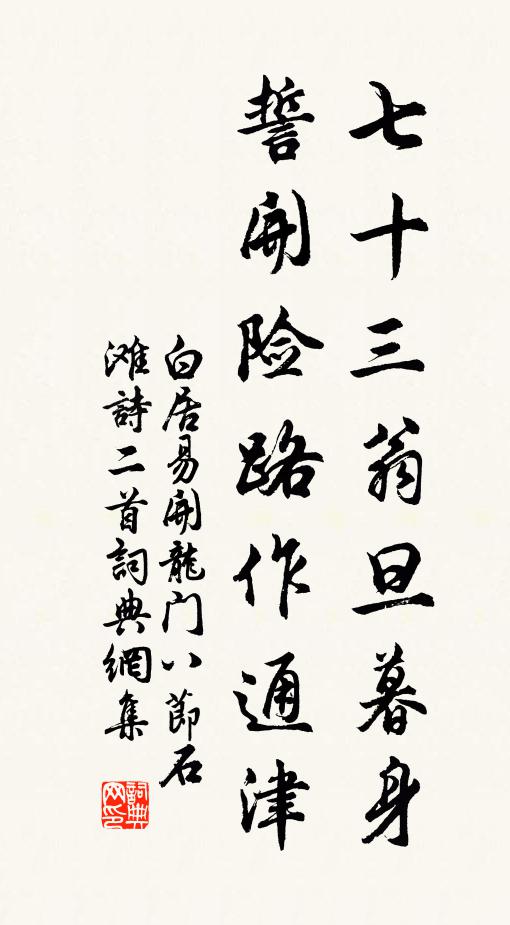 七十三翁旦暮身
誓開险路作通津
白居易開龍门八節石
滩詩二首詞典網集
詞典网印